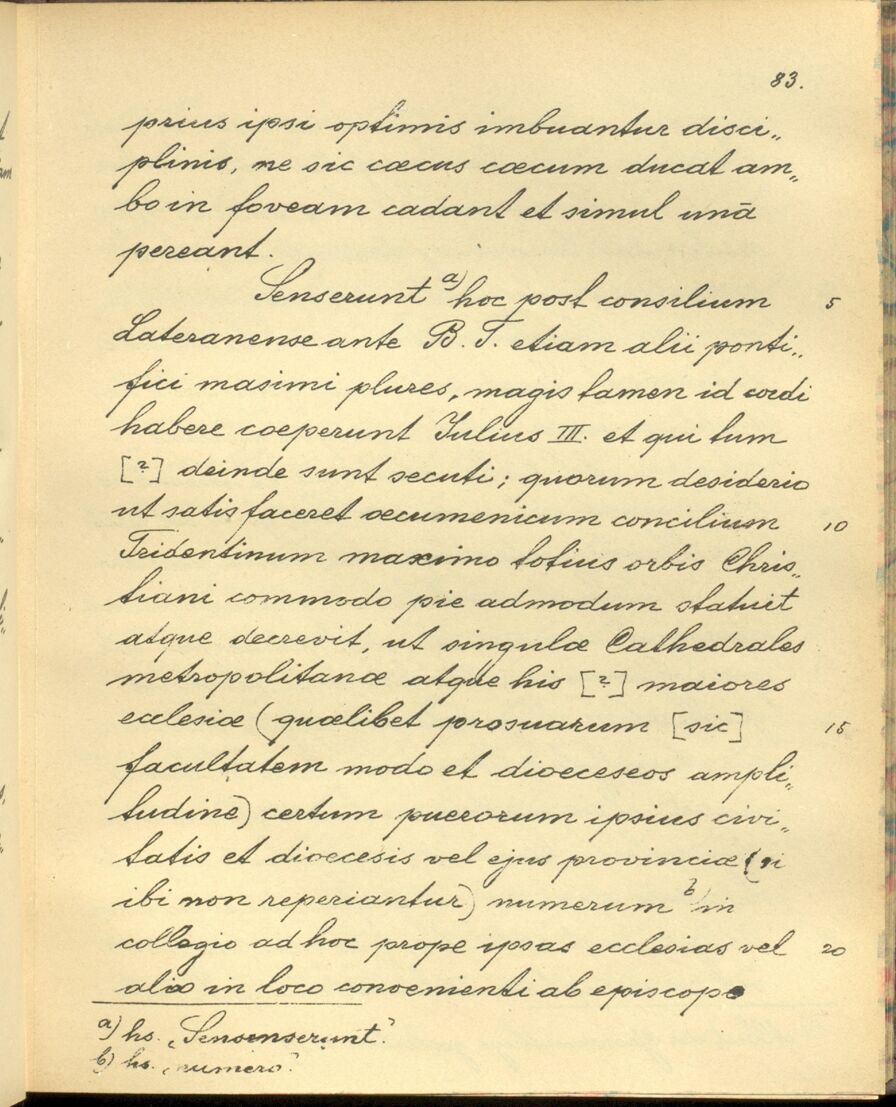 83.
prius ipsi optimis imbuantur disci„
plinis, ne sic cæcus cæcum ducat am„
bo in foveam cadant et simul unā
pereant.
Senserunt a) hoc post consilium 5
Lateranense ante B. T. etiam alii ponti„
fici masimi plures, magis tamen id cordi
habere coeperunt Iulius III. et qui tum
[?] deinde sunt secuti; quorum desiderio
ut satisfaceret oecumenicum concilium 10
Tridentinum maximo totius orbis Chris„
tiani commodo pie admodum statuit
atque decrevit, ut singulæ Cathedrales
metropolitanæ atque his [?] maiores
ecclesiæ (quælibet prosuarum [sic] 15
facultatem modo et dioeceseos ampli„
tudine) certum puerorum ipsius civi„
tatis et dioecesis vel ejus provinciæ (si
ibi non reperiantur) numerum b) in
collegio ad hoc prope ipsas ecclesias vel 20
alio in loco convenienti ab episcopo
a) hs. „Sensenserunt".
b) hs. „numero".